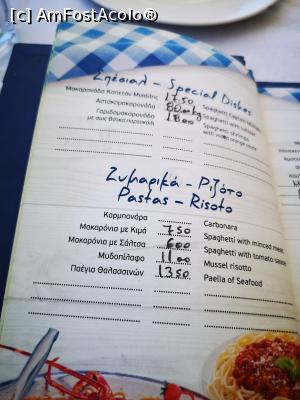 [c] AmFostAcolo®
Σπέσιαλ - Special Dishes
Μακαρονάδα Καπετάν Μιχάλης 17.50 Spaghetti Captain
Αστακομακαρονάδα 80 kg Spaghetti with
Γαριδομακαρονάδα 18 00 Spaghetti shrimps
με σως βότκα πορτοκάλι with vodka orange
Ζυμαρικά - Ριζότο
Pastas - Risoto
Καρμπονάρα Carbonara
Μακαρόνια με Κιμά 7 50 Spaghetti with minced meat
Μακαρόνια με Σάλτσα 6 00 Spaghetti with tomato sauce
Μυδοπίλαφο 11 00 Mussel risotto
Παέγια Θαλασσινών 13 50 Paella of Seafood
[c] AmFostAcolo®